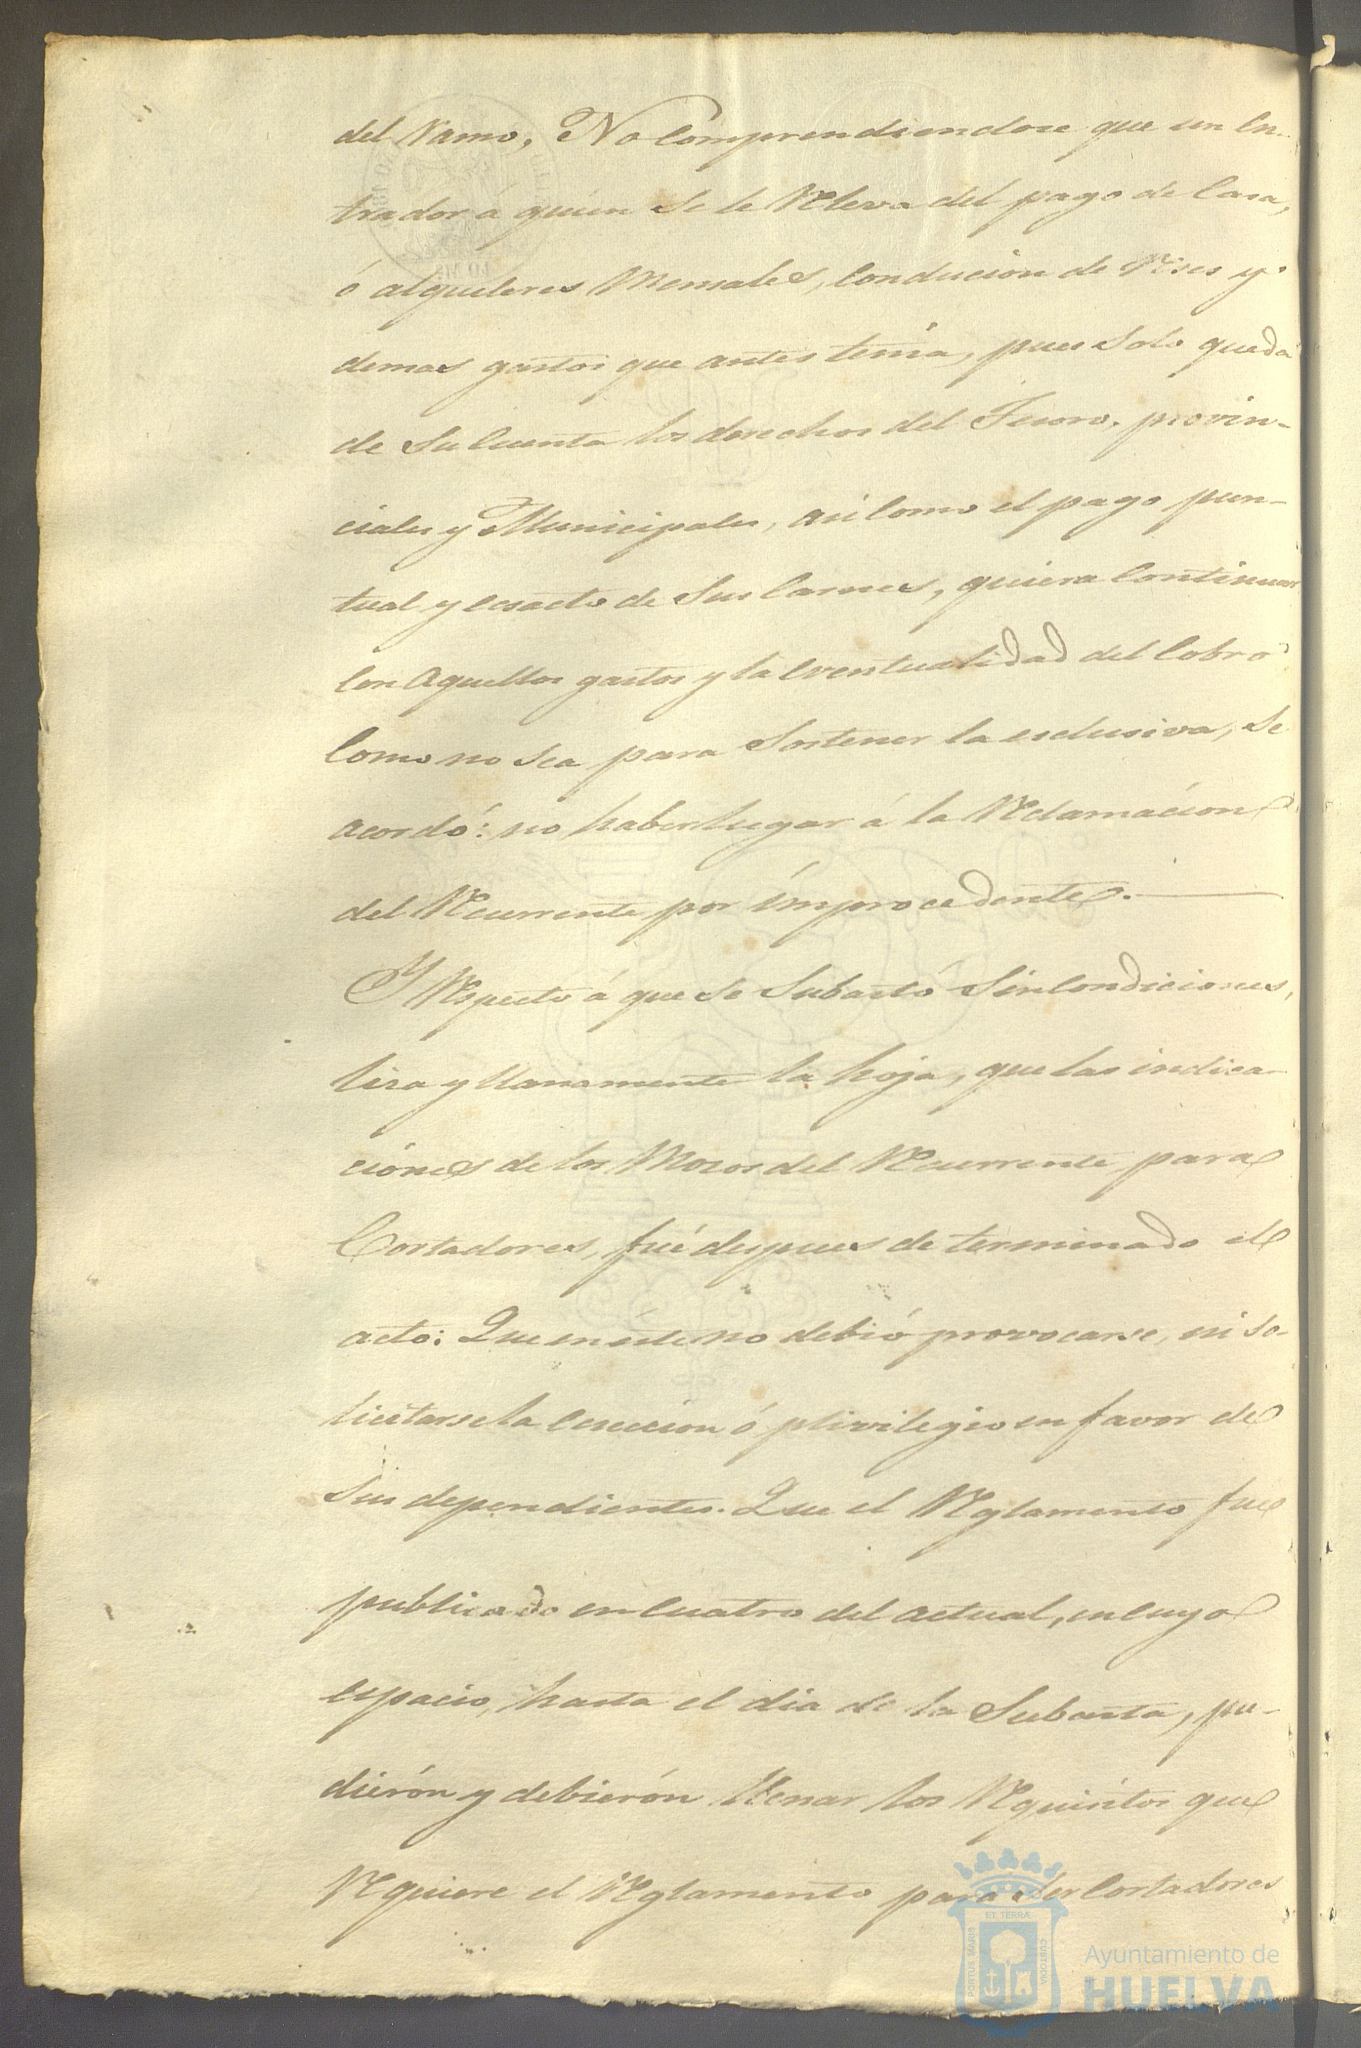 del Ramo, No comprendiendose que un en-
trador á quien se le Releva del pago de Casa,
ó alquileres Mensales, conducion de Reses y
demas gastos que antes tenia, pues solo queda
de su cuenta los derechos del Tesoro, provin-
ciales y Municipales, asi como el pago pun-
tual y ecsacto de sus Carnes, quiera continuar
con aquellos gastos y la eventualidad del Cobro
como no sea para sostener la esclusiva, se
acordó: no haber lugar á la Reclamacion
del Recurrente por improcedente.
Y Respecto á que se subastó sin condiciones,
lisa y llanamente la hoja, que las indica-
ciones de los Mozos del Recurrente para
Cortadores, fué despues de terminado el
acto: Que en este no debió provocarse, ni so-
licitarse la esencion ó plivilegio en favor de
sus dependientes. Que el Reglamento fue
publicado en cuatro del actual, en cuyo
espacio, hasta el dia de la Subasta, pu-
dierón y debierón llenar los Requisitos que
Requiere el Reglamento para ser Cortadores
PORTUS MARIS
ET TERRÆ
CUSTODIA
Ayuntamiento de
HUELVA